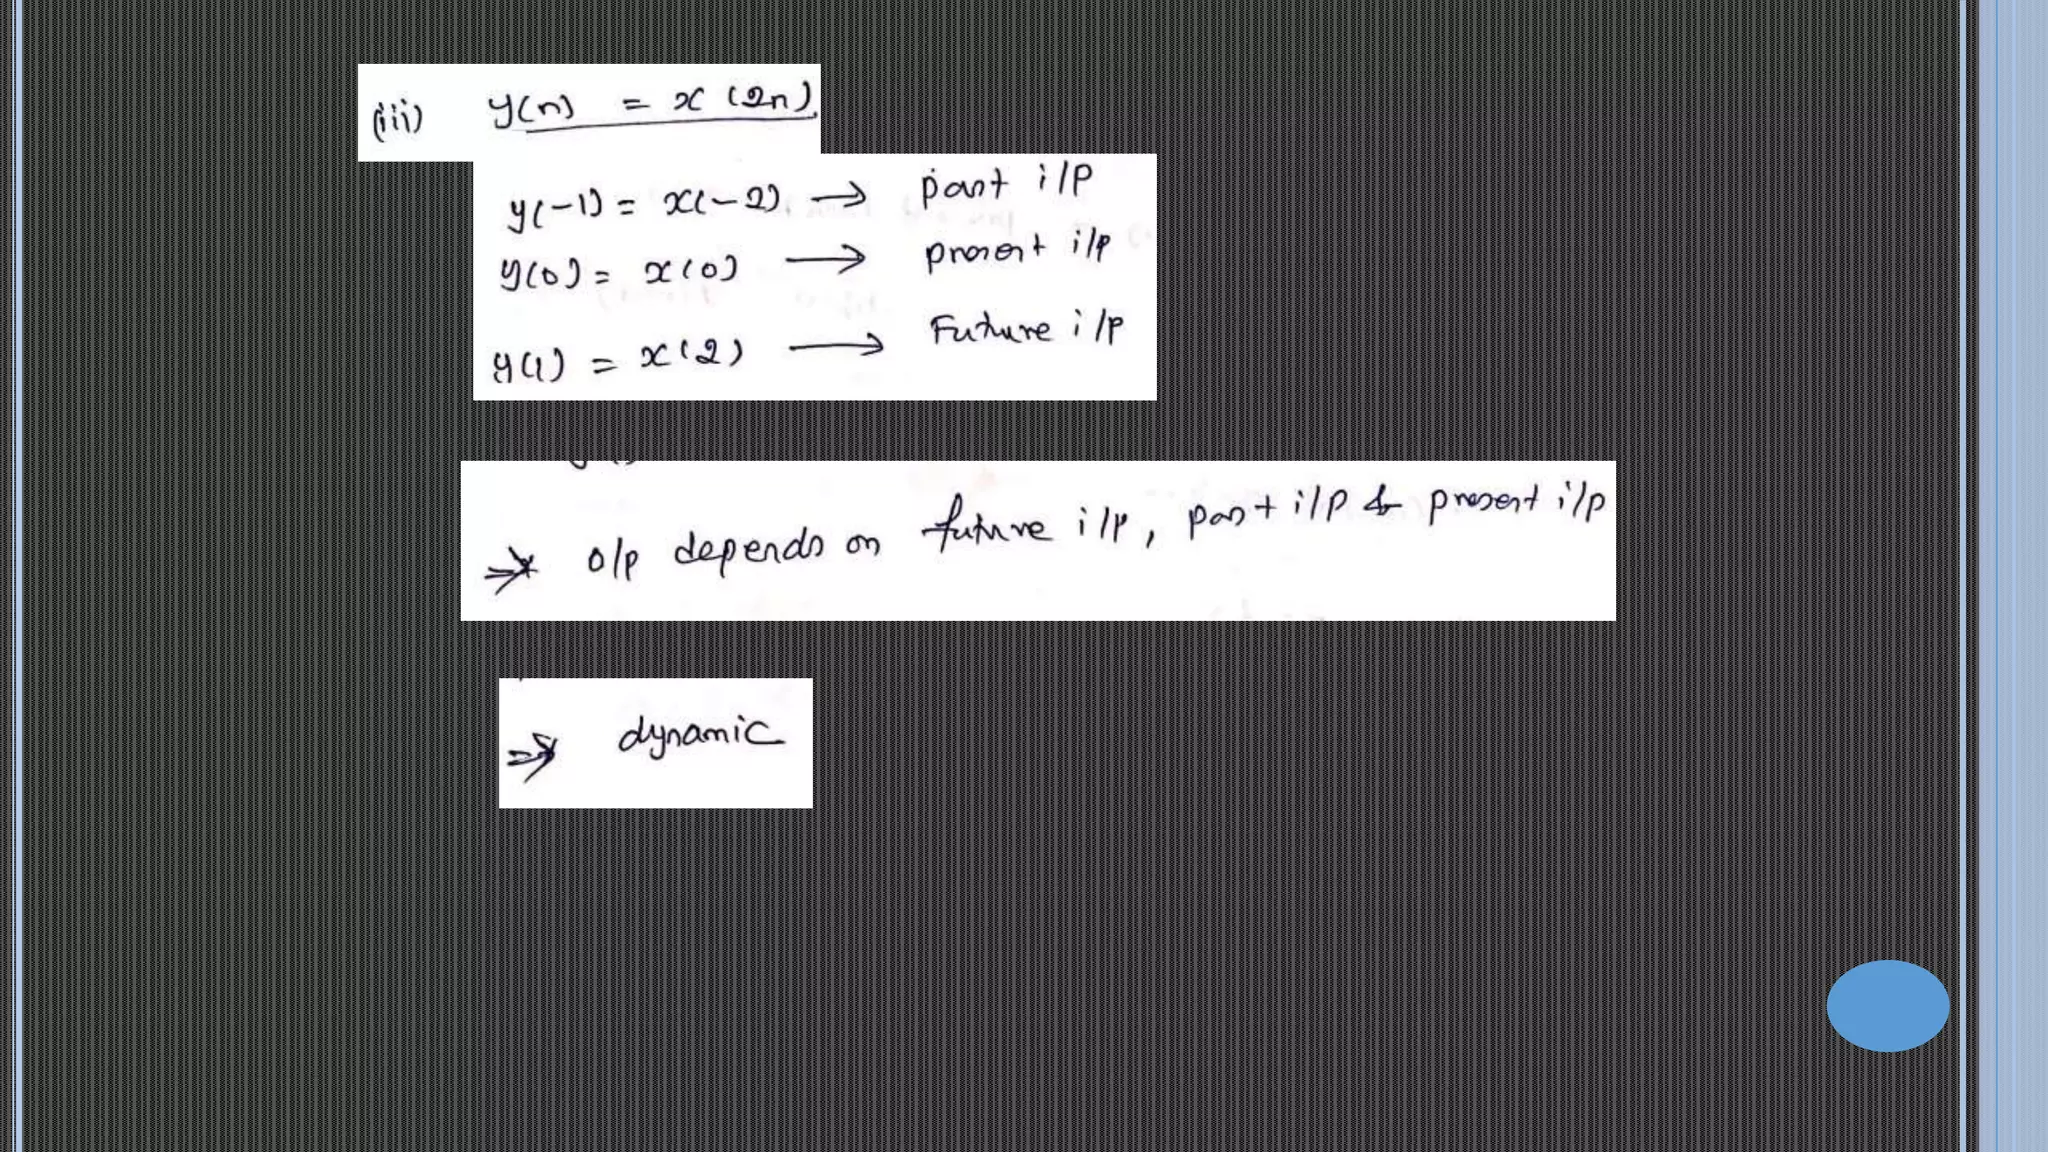 (iii) y(n) = x(2n)
y(-1) = x(-2) → past i/p
y(0) = x(0) → present i/p
y(1) = x(2) → Future i/p
⇒ o/p depends on future i/p, past i/p & present i/p
⇒ dynamic